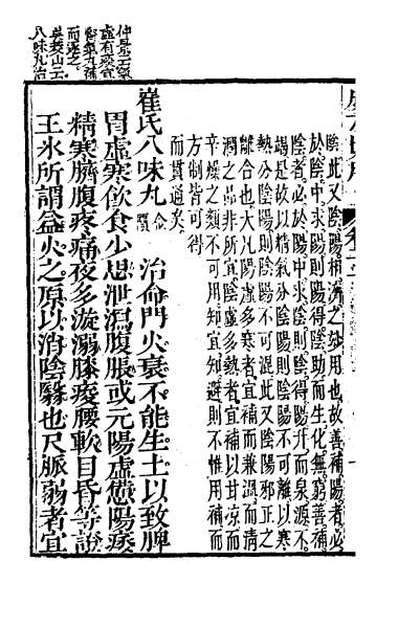 仲景云氣
虛有痰宜
腎氣丸補
而逐之。
吳茭山云
八味丸治
陰此又陰陽相濟之妙用也故善補陽者必
於陰中求陽則陽得陰助而生化無窮善補
陰者必於陽中求陰則陰得陽升而泉源不
竭是故以精氣分陰陽則陰陽不可離以寒
熱分陰陽則陰陽不可混此又陰陽邪正之
離合也大凡陽虛多寒者宜補而兼溫而清
潤之品非所宜陰虛多熱者宜補以甘凉而
辛燥之類不可用知宜知避則不惟用補而
方制皆可得
而貫通矣
崔氏八味丸 金匱 治命門火衰不能生土以致脾
胃虛寒飲食少思泄瀉腹脹或元陽虛憊陽痿
精寒臍腹疼痛夜多漩溺膝痠腰軟目昏等證
王冰所謂益火之原以消陰翳也尺脈弱者宜